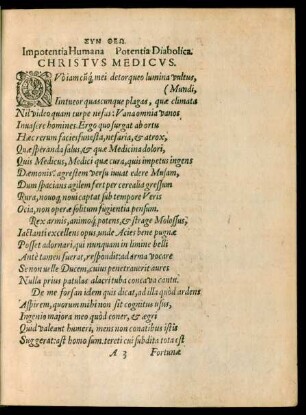 ΣΥΝ ΘΕΩ
Impotentia Humana Potentia Diabolica.
CHRISTVS MEDICVS.
QVò iamcũq̃ mei detorqueo lumina vultus,
(Mundi,
Sintueor quascunque plagas, quæ climata
Nil video quam turpe nefas: Vana omnia vanos
Inuasere homines. Ergo quo surgat ab ortu
Hæc rerum facies funesta, nefaria, & atrox,
Quæ speranda salus, & quæ Medicina dolori,
Quis Medicus, Medici quæ cura, quis impetus ingens
Dæmonis: agrestem versu iuuat edere Musam,
Dum spacians agilem fert per cerealia gressum
Rura, nouoq́, noui captat sub tempore Veris
Ocia, non operæ solitum fugientia pensum.
Rex armis, animoq́, potens, & strage Molossus,
Iactanti excellens opus, unde Acies bene pugnæ
Posset adornari, qui nunquam in limine belli
Antè tamen fuerat, respondit: ad arma vocare
Se non velle Ducem, cuius penetrauerit aures
Nulla prius patulæ alacri tuba conca va cantu.
De me forsan idem quis dicat, ad illa quòd ardens
Aspirem, quorum mihi non sit cognitus usus,
Ingenio majora meo quòd coner, & ægri
Quid valeant humeri, mens non conatibus istis
Suggerat: ast homo sum. tereti cui subdita tota est
A 3 Fortunæ